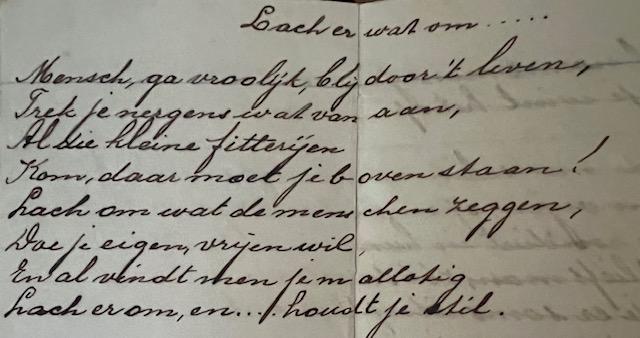 Lach er wat om .....
Mensch, ga vroolijk, blij door 't leven,
Trek je nergens wat van aan,
Al die kleine fitterijen
Kom, daar moet je boven staan!
Lach om wat de menschen zeggen,
Doe je eigen, vrijen wil,
En al vindt men je mallotig
Lach er om, en.... houdt je stil.